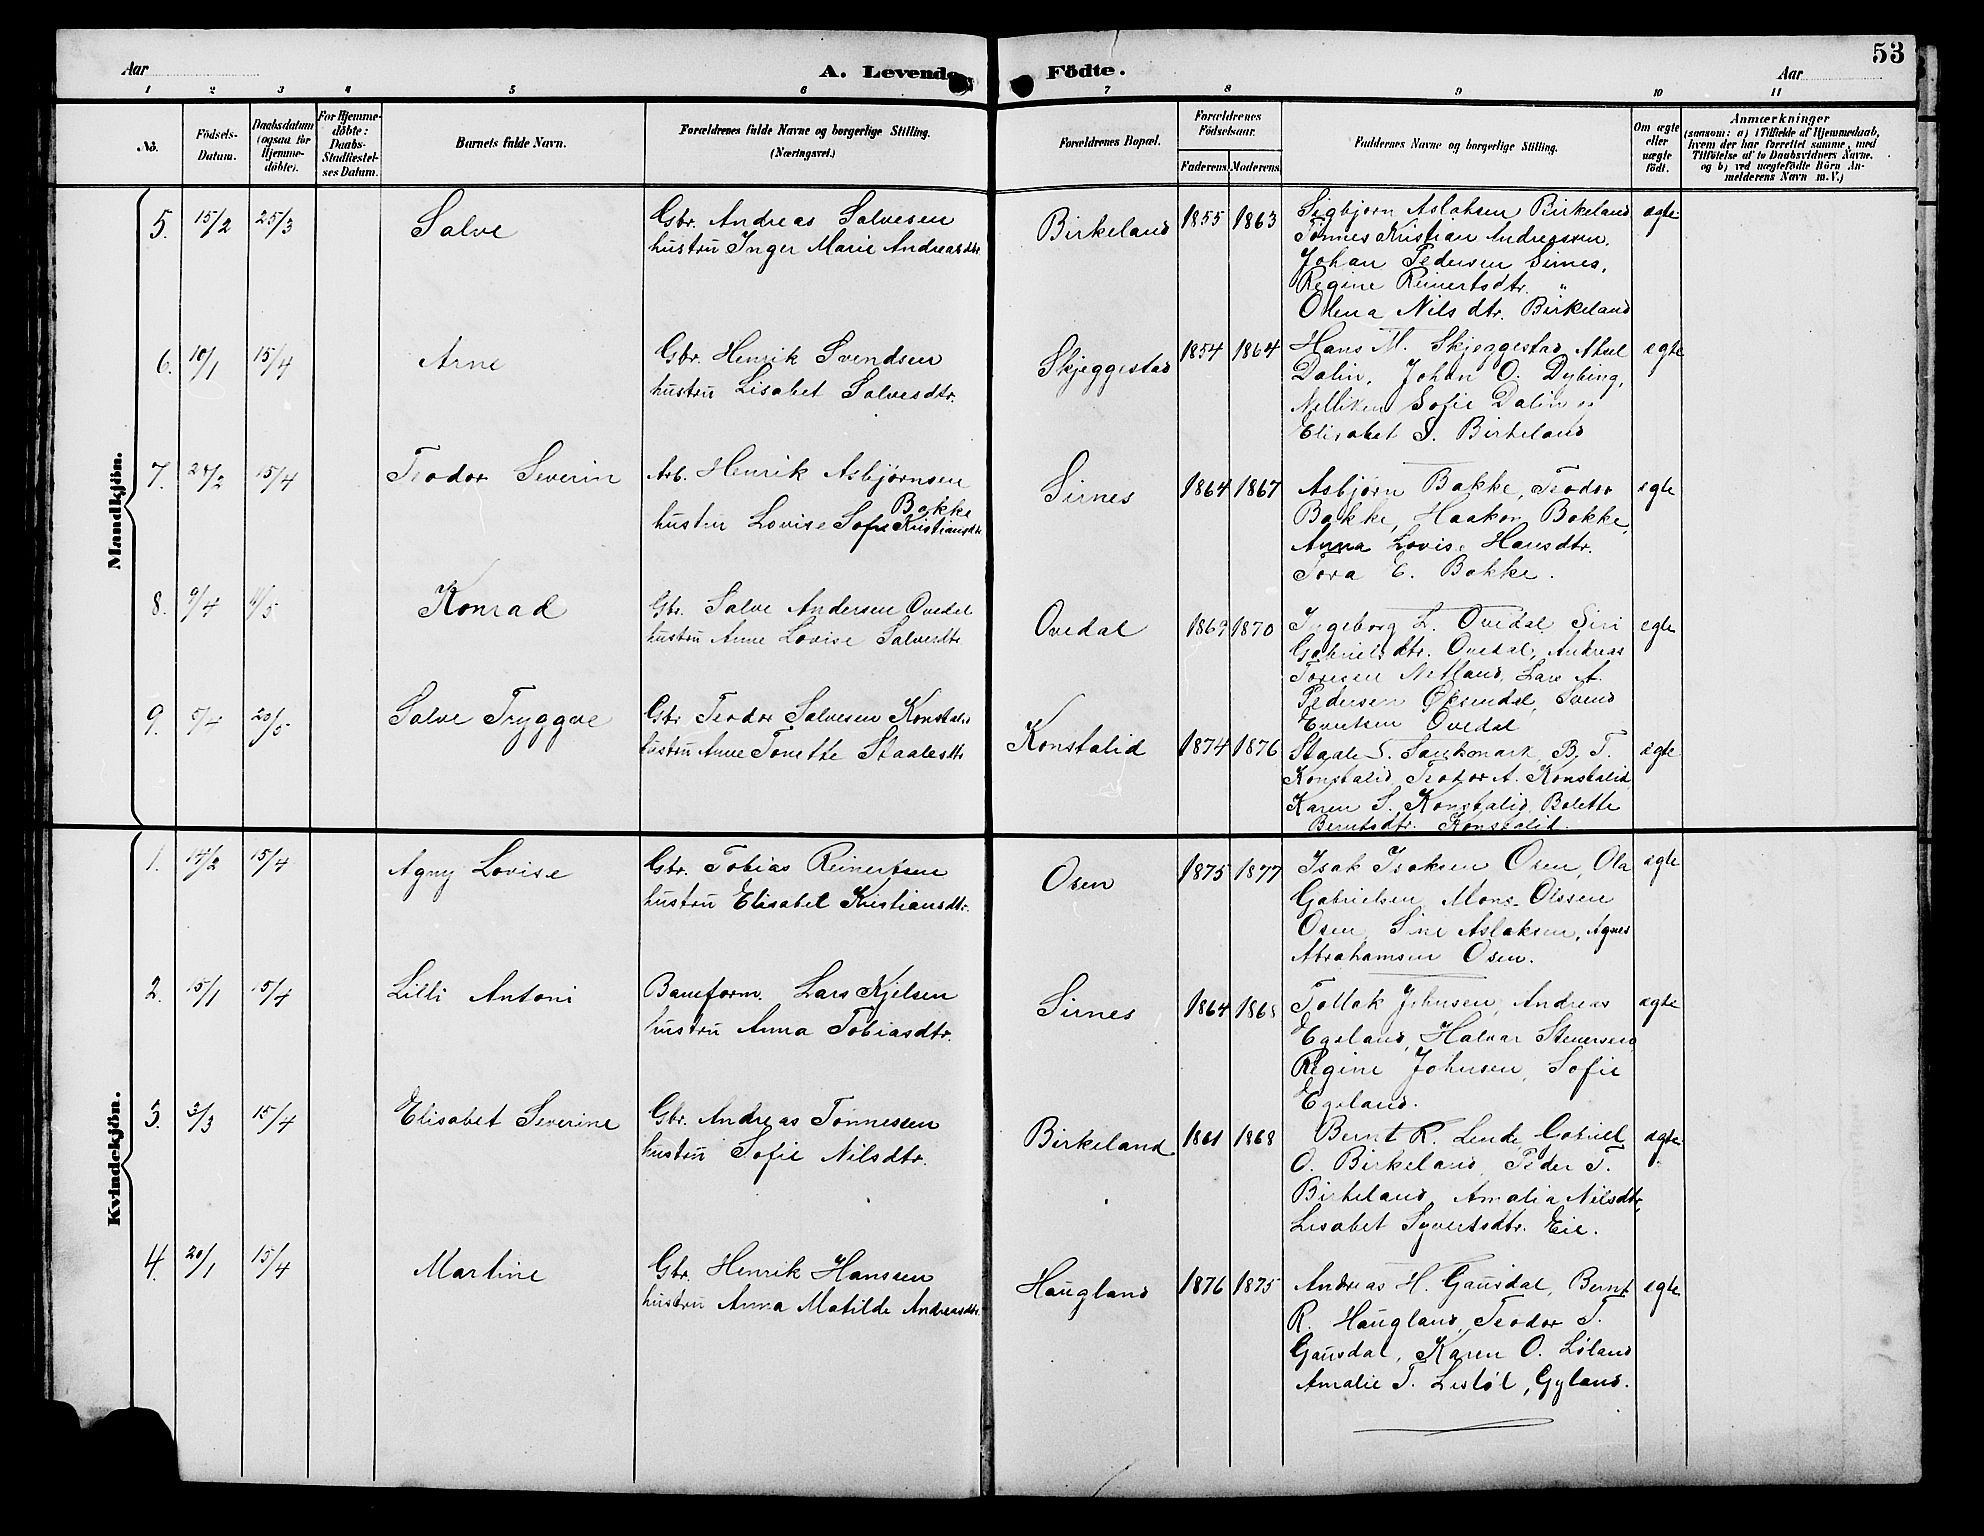 53
Aar
A. Levende
Födte.
Aar
1 2 3 4 5 6 7 8 9 10 11
No.
Födsels-Datum.
Daabsdatum (ogsaa for Hjemme-döbte).
For Hjemme-döbte: Daabs-Stadfæstel-ses Datum.
Barnets fulde Navn.
Forældrenes fulde Navne og borgerlige Stilling. (Næringsvei.)
Forældrenes Bopæl.
Forældrenes Födselsaar.
Faderens. Moderens.
Faddernes Navne og borgerlige Stilling.
Om ægte eller uægte födt.
Anmærkninger
(saasom: a) i Tilfælde af Hjemmedaab,
hvem der har forrettet samme, med
Tilföielse af to Daabsvidners Navne.
og b) ved uægtefödte Börn An-
melderens Navn m. V.)
Mandkjön.
5. 15/2 25/3 Salve
Gbr. Andreas Salvesen
hustru Inger Marie Andreasdtr.
Birkeland 1855 1863
Sigbjørn Aslaksen Birkeland
Tönnes Kristian Andreassen,
Johan Pedersen Sirnes,
Regine Reinertsdtr. "
Olena Nilsdtr. Birkeland
ægte
6. 10/1 15/4 Arne
Gbr. Henrik Svendsen
hustru Lisabet Salvesdtr.
Skjeggestad 1854 1864
Hans M. Skjeggestad, Aksel
Dalin, Johan O. Dybing,
Nelliken Sofie Dalin og
Elisabet S. Birkeland
ægte
7. 24/2 15/4 Teodor Severin
Arb. Henrik Asbjørnsen
Bakke
hustru Lovise Sofie Kristiansdtr
Sirnes 1864 1867
Asbjørn Bakke, Teodor
Bakke, Haakon Bakke,
Anna Lovise Hansdtr.
Tora E. Bakke.
ægte
8. 9/4 /5 Konrad
Gbr. Salve Andersen Ovedal
hustru Anne Lovise Salvesdtr
Ovedal 1869 1870
Ingeborg L. Ovedal, Siri
Gabrielsdtr. Ovedal, Andreas
Toresen Netland, Lars A.
Pedersen Øksendal, Svend
Ovedal
ægte
9. 5/4 20/5 Salve Tryggve
Gbr. Teodor Salvesen Konstalid
hustru Anne Tonette Staalesdtr
Konstalid 1874 1876
Staale S. B. T.
Konstalid, Teodor A. Konstalid,
Karen S. Konstalid, Bolette
Berntsdtr. Konstalid.
ægte
Kvindekjön.
1. 14/2 15/4 Agny Lovise
Gbr. Tobias Reinertsen
hustru Elisabet Kristiansdtr.
Osen 1875 1877
Isak Isaksen Osen, Ola
Gabrielsen, Mons Olssen
Osen, Sine Aslaksen, Agnes
Abrahamsen Osen.
ægte
2. 15/1 15/4 Lilli Antoni
Baneform. Lars Kjelsen
hustru Anna Tobiasdtr.
Sirnes 1864 186
Tollak Johnsen, Andreas
Egeland, Halvar Stenersen,
Regine Johnsen, Sofie
Egeland.
ægte
3. 3/3 15/4 Elisabet Severine
Gbr. Andreas Tönnessen
hustru Sofie Nilsdtr.
Birkeland 1861 1868
Bernt R. Lende, Gabriel
O. Birkeland, Peder T.
Birkeland, Amalia Nilsdtr,
Lisabet Syvertsdtr. Eie.
ægte
4. 20/1 15/4 Martine
Gbr. Henrik Hansen
hustru Anna Matilde Andreasdtr.
Haugland 1876 1875
Andreas H. Gausdal, Bernt
R. Haugland, Teodor T.
Gausdal, Karen O. Løland
Amalie T. Lestøl, Gyland.
ægte